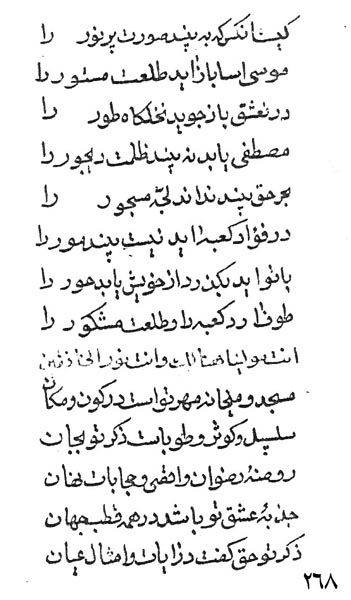 کیست آنکس که به بیند صورت پر نور را
موسی آسا باز آید طلعت مستور را
در تعشق باز جوید نخلگاه طور را
مصطفی یابد نه بیند ظلمت دیجور را
بحر حق بیند نداند لجّه مسجور را
در فؤاد کعبه آید نیت بیند مور را
با تو آید بگذرد از خویش یابد حور را
طوف آرد کعبه را و طلعت مشکور را
انت مولینا وانت نور
مسجد و میخانه مهر تو است در کون و مکان
سلسبیل و کوثر و طوبا ست ذکر تو بجان
روضهٔ رضوان و اقصی و حجابات نهان
جذبهٔ عشق تو باشد در همه قطب جهان
ذکر تو حق گفت در آیات و امثال عیان
۲۶۸